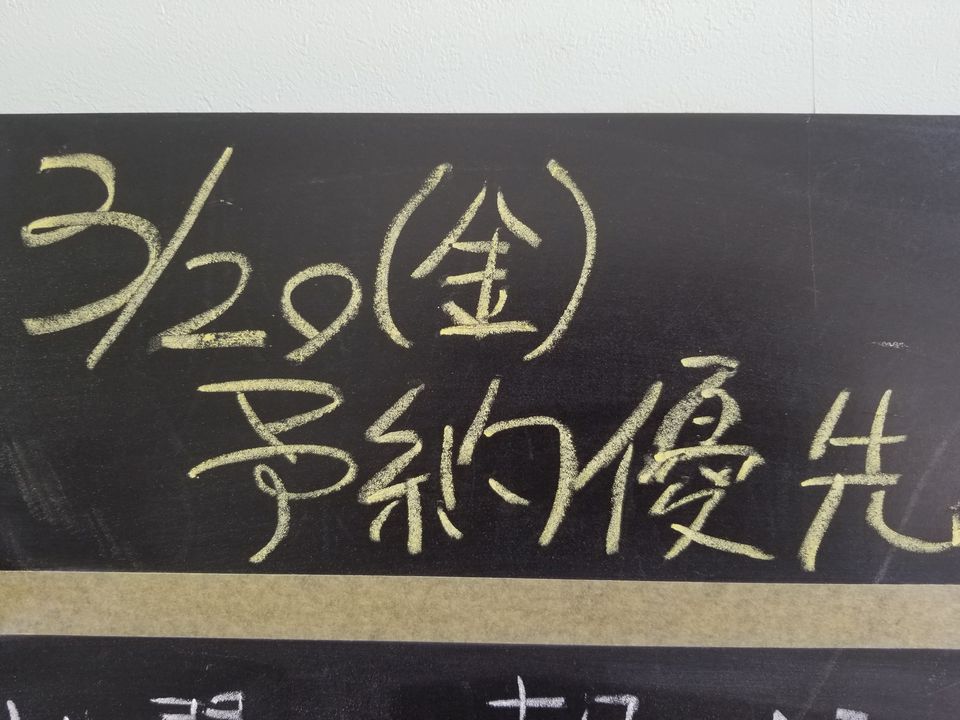 3/20(金)
予約優先